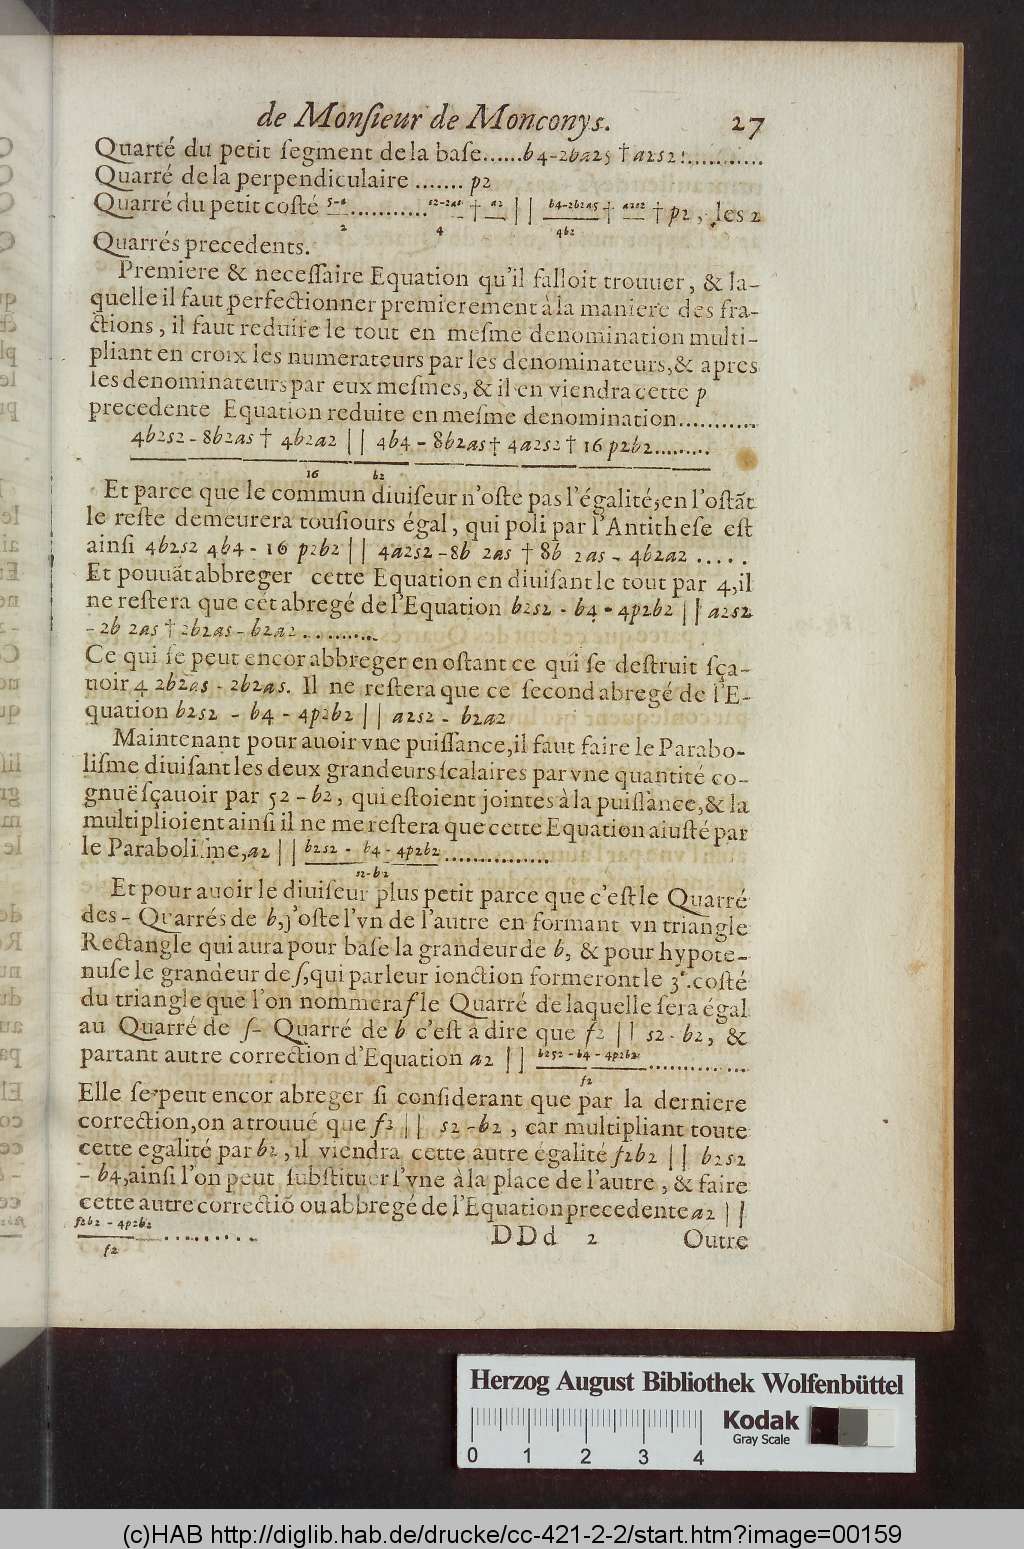 de Monſieur de Monconys. 27
Quarté du petit ſegment de la baſe......b4-2ba2s †a2s2:...........
Quarré de la perpendiculaire ....... p2
Quarré du petit coſté s-a...........s2-2as † a2 || b4-2b2as † a2s2 † p2, les 2
2 4 4b2
Quarrés precedents.
Premiere & neceſſaire Equation qu'il falloit trouuer, & la-
quelle il faut perfectionner premierement à la maniere des fra-
ctions, il faut reduire le tout en meſme denomination multi-
pliant en croix les numerateurs par les denominateurs, & apres
les denominateurs par eux meſmes, & il en viendra cette p
precedente Equation reduite en meſme denomination...........
4b2s2 - 8b2as † 4b2a2 || 4b4 - 8b2as † 4a2s2 † 16 p2b2.........
16 b2
Et parce que le commun diuiſeur n'oſte pas l'égalité, en l'oſtāt
le reſte demeurera touſiours égal, qui poli par l'Antitheſe eſt
ainſi 4b2s2 4b4 - 16 p2b2 || 4a2s2 - 8b 2as † 8b 2as - 4b2a2 .....
Et pouuāt abbreger cette Equation en diuiſant le tout par 4, il
ne reſtera que cet abregé de l'Equation b2s2 - b4 - 4p2b2 || a2s2
- 2b 2as † 2b2as - b2a2 ..........
Ce qui ſe peut encor abbreger en oſtant ce qui ſe deſtruit ſça-
uoir 4 2b2as - 2b2as. Il ne reſtera que ce ſecond abregé de l'E-
quation b2s2 - b4 - 4p2b2 || a2s2 - b2a2
Maintenant pour auoir vne puiſſance, il faut faire le Parabo-
liſme diuiſant les deux grandeurs ſcalaires par vne quantité co-
gnuë ſçauoir par s2 - b2, qui eſtoient jointes à la puiſſance, & la
multiplioient ainſi il ne me reſtera que cette Equation aiuſté par
le Paraboliſme, a2 || b2s2 - b4 - 4p2b2 ...............
s2-b2
Et pour auoir le diuiſeur plus petit parce que c'eſt le Quarré
des - Quarrés de b, j'oſte l'vn de l'autre en formant vn triangle
Rectangle qui aura pour baſe la grandeur de b, & pour hypote-
nuſe le grandeur de ſ, qui par leur ionction formeront le 3e. coſté
du triangle que l'on nommera f le Quarré de laquelle ſera égal
au Quarré de ſ- Quarré de b c'eſt à dire que f2 || s2 - b2, &
partant autre correction d'Equation a2 || b2s2 - b4 - 4p2b2 ............
f2
Elle ſe peut encor abreger ſi conſiderant que par la derniere
correction, on a trouué que f2 || s2 - b2, car multipliant toute
cette egalité par b2, il viendra cette autre égalité f2b2 || b2s2
- b4, ainſi l'on peut ſubſtituer l'vne à la place de l'autre, & faire
cette autre correctiō ou abbregé de l'Equation precedente a2 ||
f2b2 - 4p2b2 .........
f2
DDd 2 Outre
Herzog August Bibliothek Wolfenbüttel
Kodak
Gray Scale
0 1 2 3 4
(c)HAB http://diglib.hab.de/drucke/cc-421-2-2/start.htm?image=00159